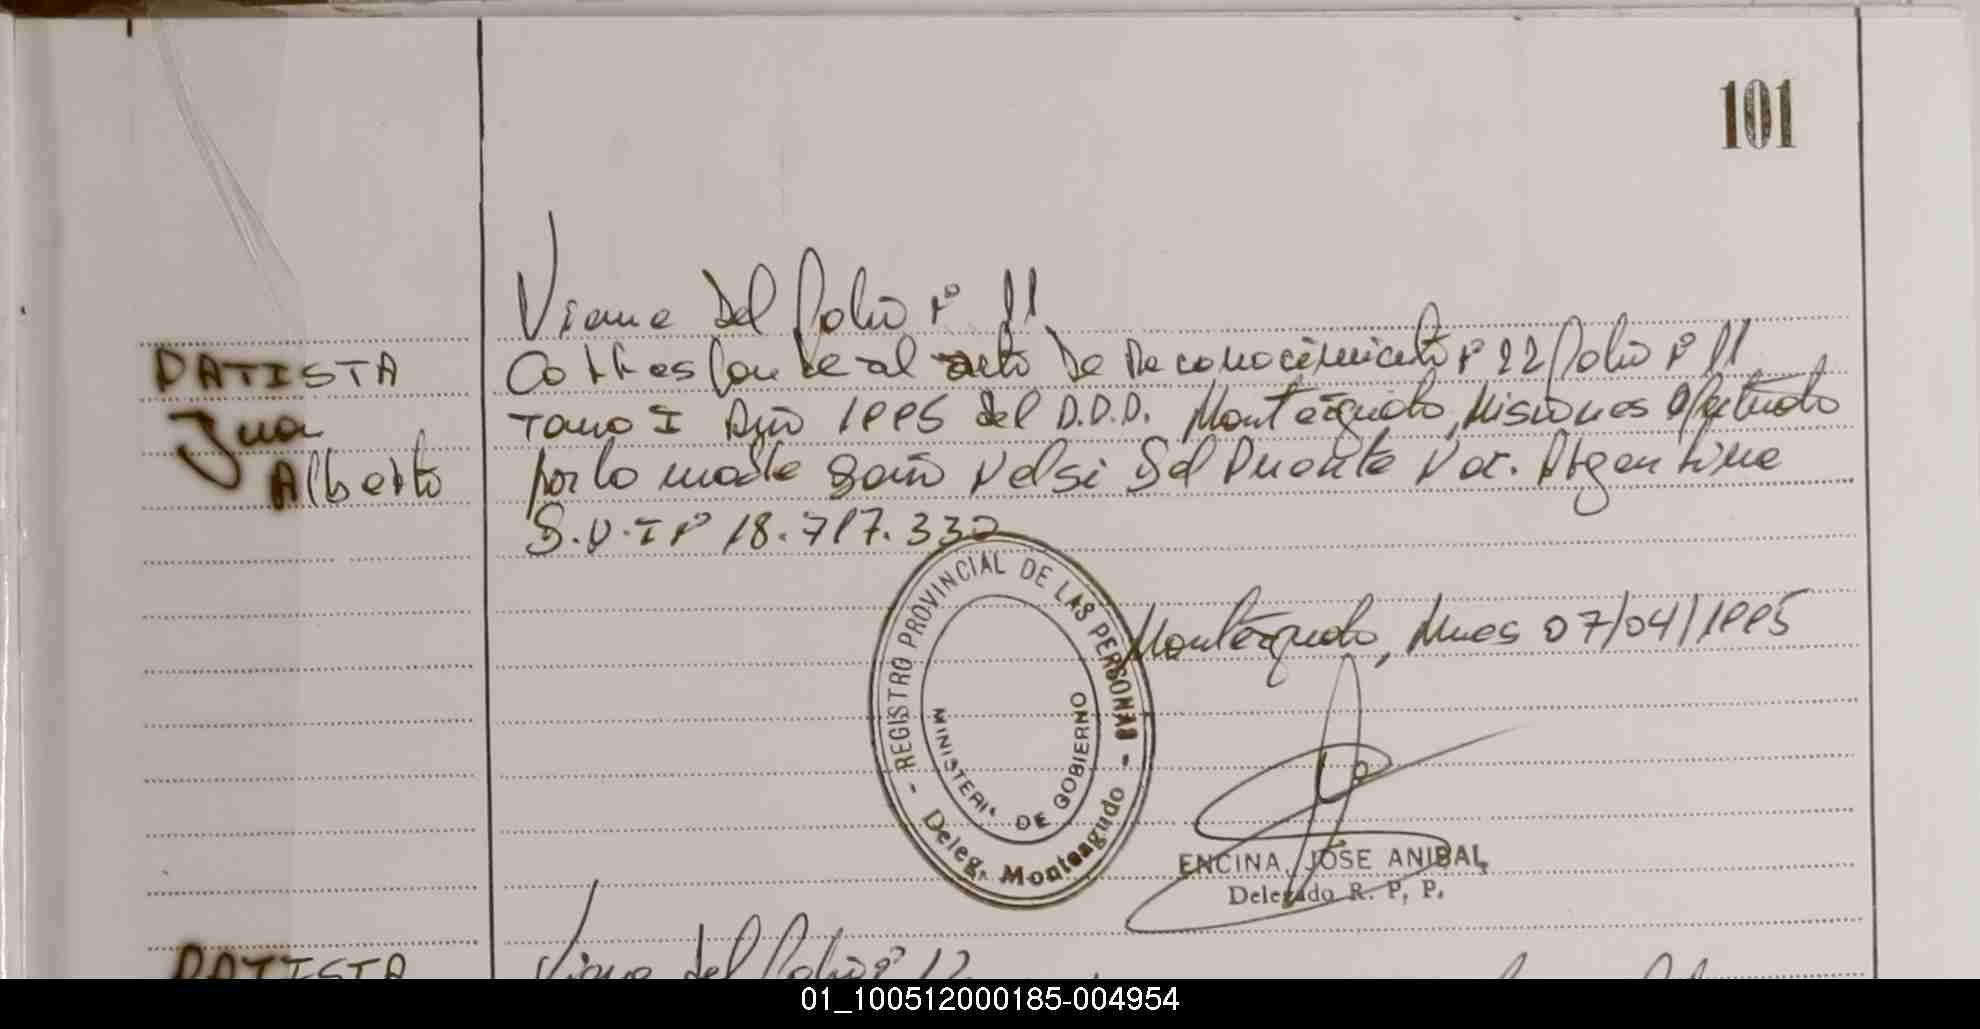 101
Viene Del folio Nº 11
BATISTA
Juan
Alberto
Corresponde al acto De Reconocimiento Nº 22 folio Nº 11
Tomo I Año 1995 del R.P.P. Monteagudo, Misiones efectuado
por la madre Doña Nelsi Del Puente Nac. Argentina
D.N.I Nº 18.717.332
Monteagudo, Mnes 07/04/1995
- REGISTRO PROVINCIAL DE LAS PERSONAS -
MINISTERIO DE GOBIERNO
Deleg. Monteagudo
ENCINA, JOSE ANIBAL
Delegado R. P. P.
BATISTA
Viene del folio Nº 12
01_100512000185-004954